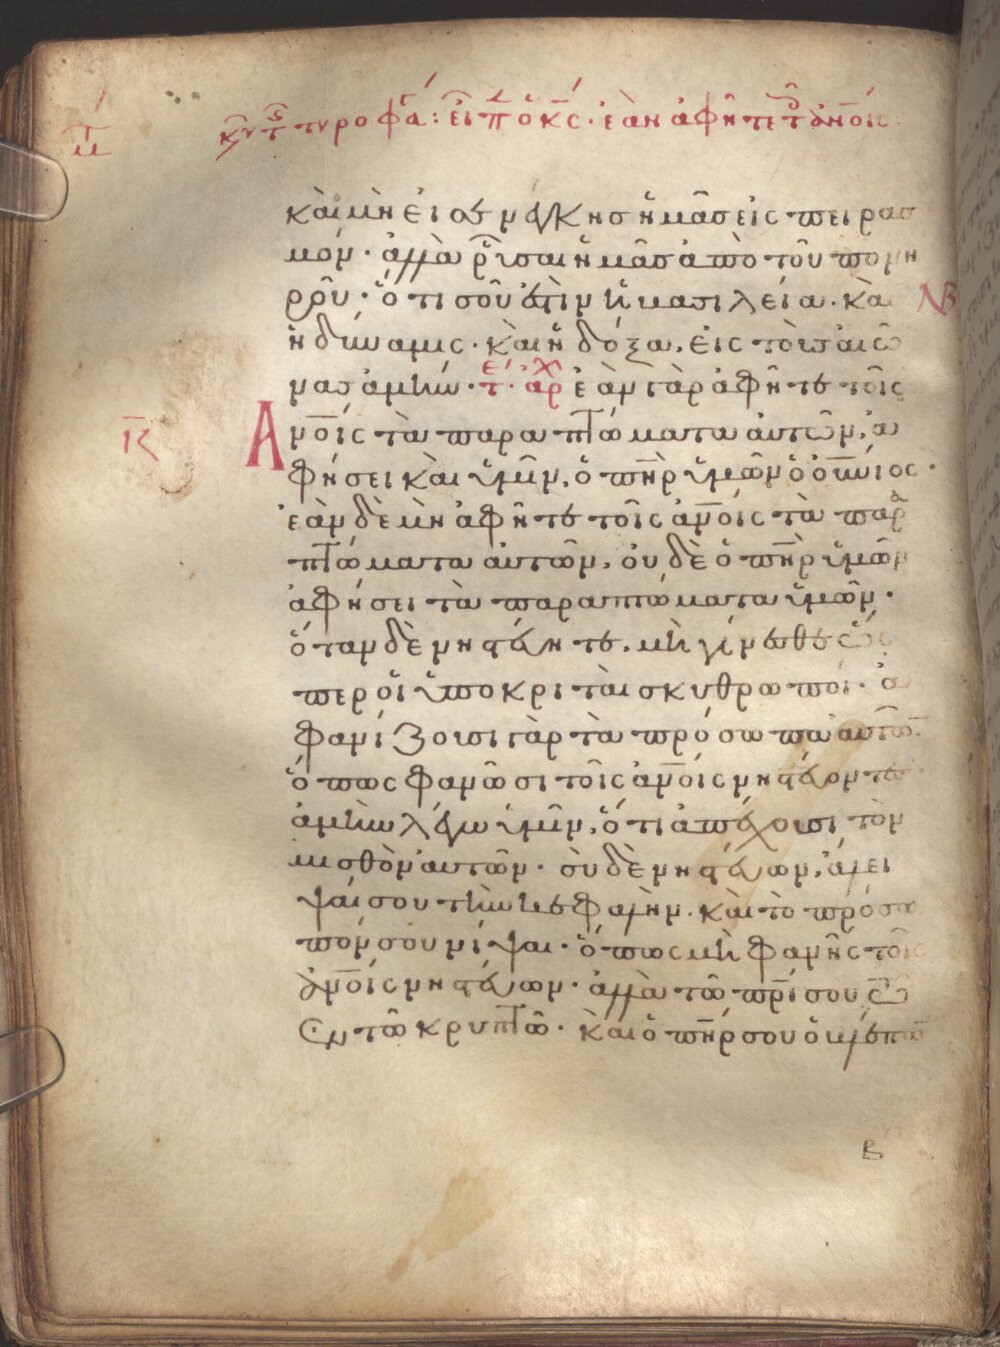 κυ τ τυροφα: ειπ ο κς· ἐὰν ἀφῆτε τ ἀνοις
μ
καὶ μὴ εἰσενέγκησ ἡμᾶσ εἰς πειρασ
μόν· ἀλλὰ ῥῦσαι ἡμᾶσ ἀπὸ τοῦ πονη
ροῦ· ὅτι σοῦ ἐστὶν ἡ βασιλεία· καὶ
ἡ δύναμις· καὶ ἡ δόξα, εἰς τοὺσ αἰῶ
νασ ἀμήν· τ· ἀρχ ἐὰν γὰρ ἀφῆτε τοῖς
κ
ἀνοῖς τὰ παραπτώματα αὐτῶν, ἀ
φήσει καὶ ὑμῖν, ὁ πηρ ὑμῶν ὁ οὐνιος·
ἐὰν δὲ μὴ ἀφῆτε τοῖς ἀνοις τὰ παρα
πτώματα αὐτῶν, οὐδὲ ὁ πηρ ὑμῶν
ἀφήσει τὰ παραπτώματα ὑμῶν·
ὅταν δὲ νηστεύητε, μὴ γίνεσθε ὥς
περ οἱ ὑποκριταὶ σκυθρωποί· ἀ
φανίζουσι γὰρ τὰ πρόσωπα αὐτῶν·
ὅπως φανῶσι τοῖς ἀνοις νηστεύοντες·
ἀμὴν λέγω ὑμῖν, ὅτι ἀπέχουσι τὸν
μισθὸν αὐτῶν· σὺ δὲ νηστεύων, ἄλει
ψαί σου τὴν κεφαλήν· καὶ τὸ πρόσω
πόν σου νίψαι· ὅπως μὴ φανῆς τοῖς
ἀνοις νηστεύων· ἀλλὰ τῶ πρι σου τῶ
ἐν τῶ κρυπτῶ· καὶ ὁ πηρ σου ὁ βλέπων